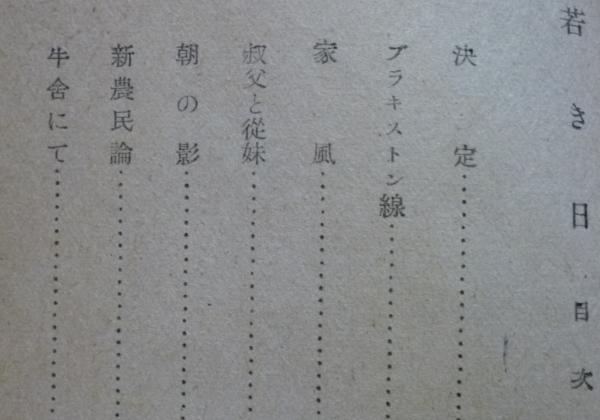 若き日 目次
決定
ブラキストン線
家風
叔父と從妹
朝の影
新農民論
牛舍にて